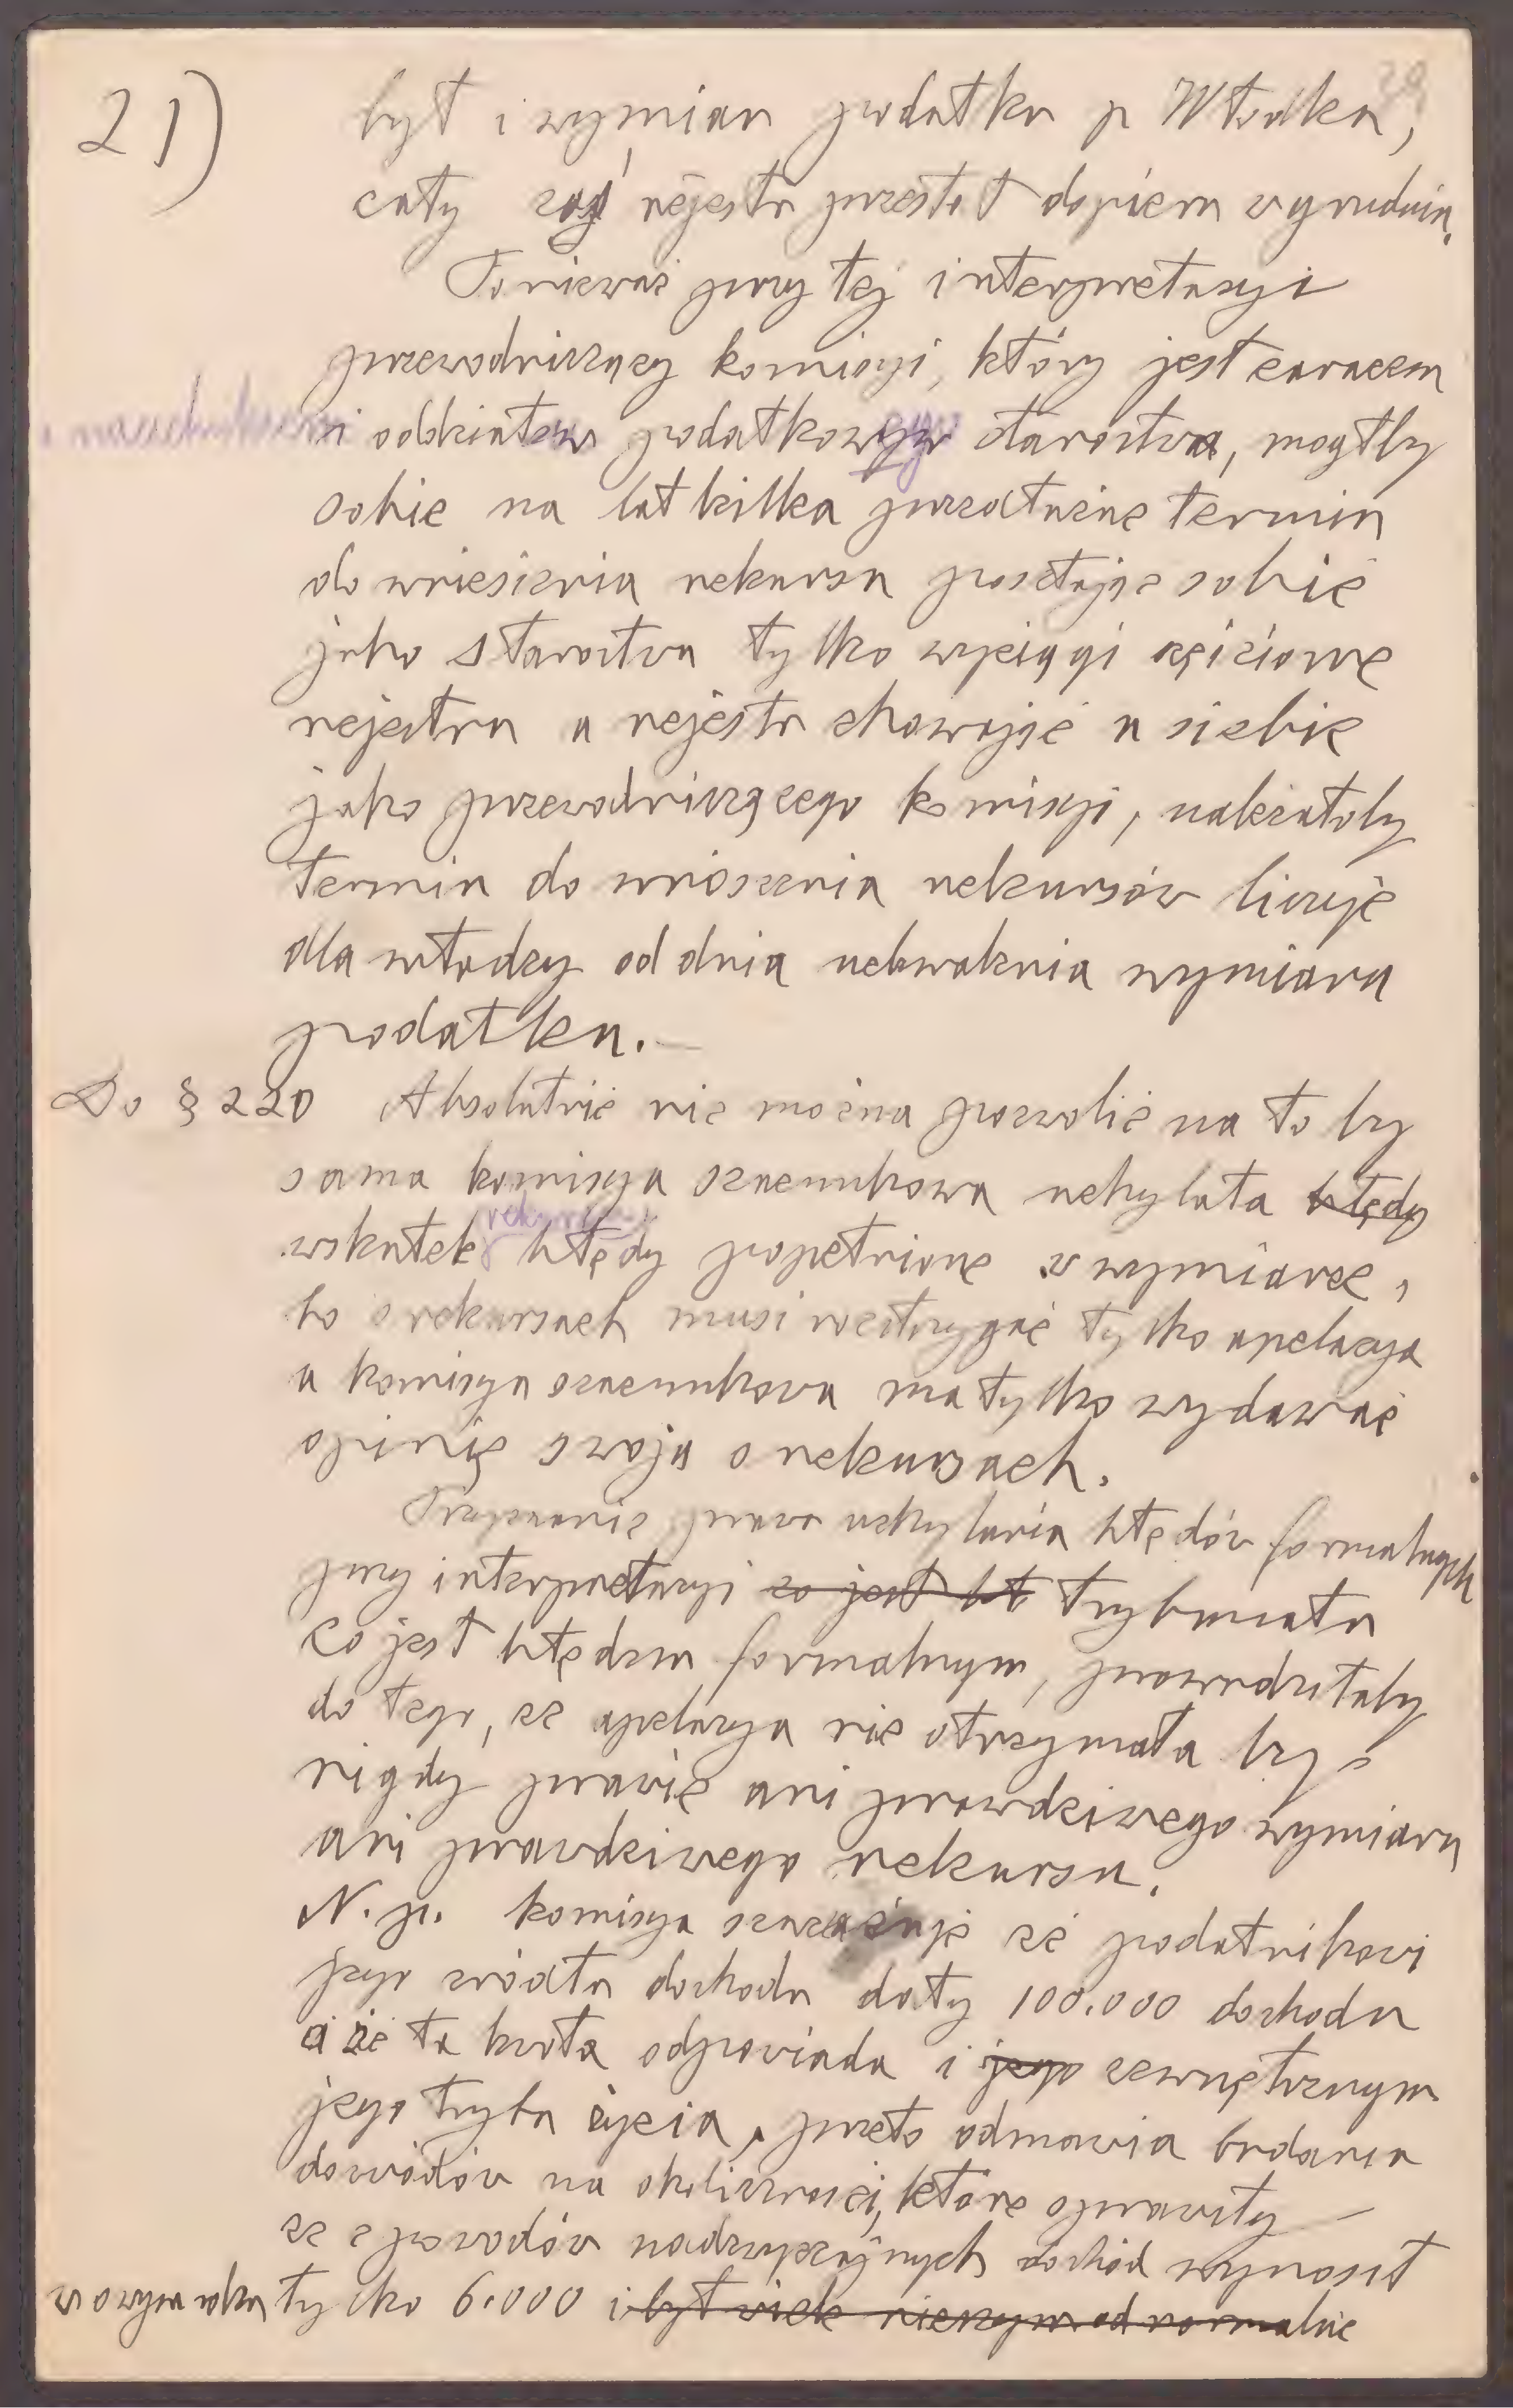 21)
29
był i wymiar podatku p Włodka,
cały zaś rejestr przesłał dopiero w grudniu.
Ponieważ przy tej interpretacyi
przewodniczący komisyi, który jest zarazem
i naczelnikiem oddziału podatkowego starostwa, mógłby
sobie na lat kilka przedłużyć termin
do wniesienia rekursu posyłając sobie
jako starostwu tylko wyciągi częściowe
rejestru a rejestr chowając u siebie
jako przewodniczącego komisyi, należałoby
termin do wnoszenia rekursów liczyć
dla władzy od dnia uchwalenia wymiaru
podatku.
Do § 220 Absolutnie nie można pozwolić na to by
sama komisya szacunkowa uchylała błędy
wskutek rekursu błędy popełnione w wymiarze,
bo o rekursach musi rozstrzygać tylko apelacya
a komisya szacunkowa ma tylko wydawać
opinię swoją o rekursach.
Przyznanie prawa uchylania błędów formalnych
przy interpretacyi co jest bł trybunału
co jest błędem formalnym, prowadziłaby
do tego, że apelacya nie otrzymała by
nigdy prawie ani prawdziwego wymiaru
ani prawdziwego rekursu.
N. p. komisya szacuje że podatnikowi
jego źródła dochodu dały 100.000 dochodu
a że ta kwota odpowiada i jego zewnętrznym
jego trybu życia, przeto odmawia badania
dowodów na okoliczności, które sprawiły
że z powodów nadzwyczajnych dochód wynosił
w owym roku tylko 6.000 i był wiele niższym od normalnie